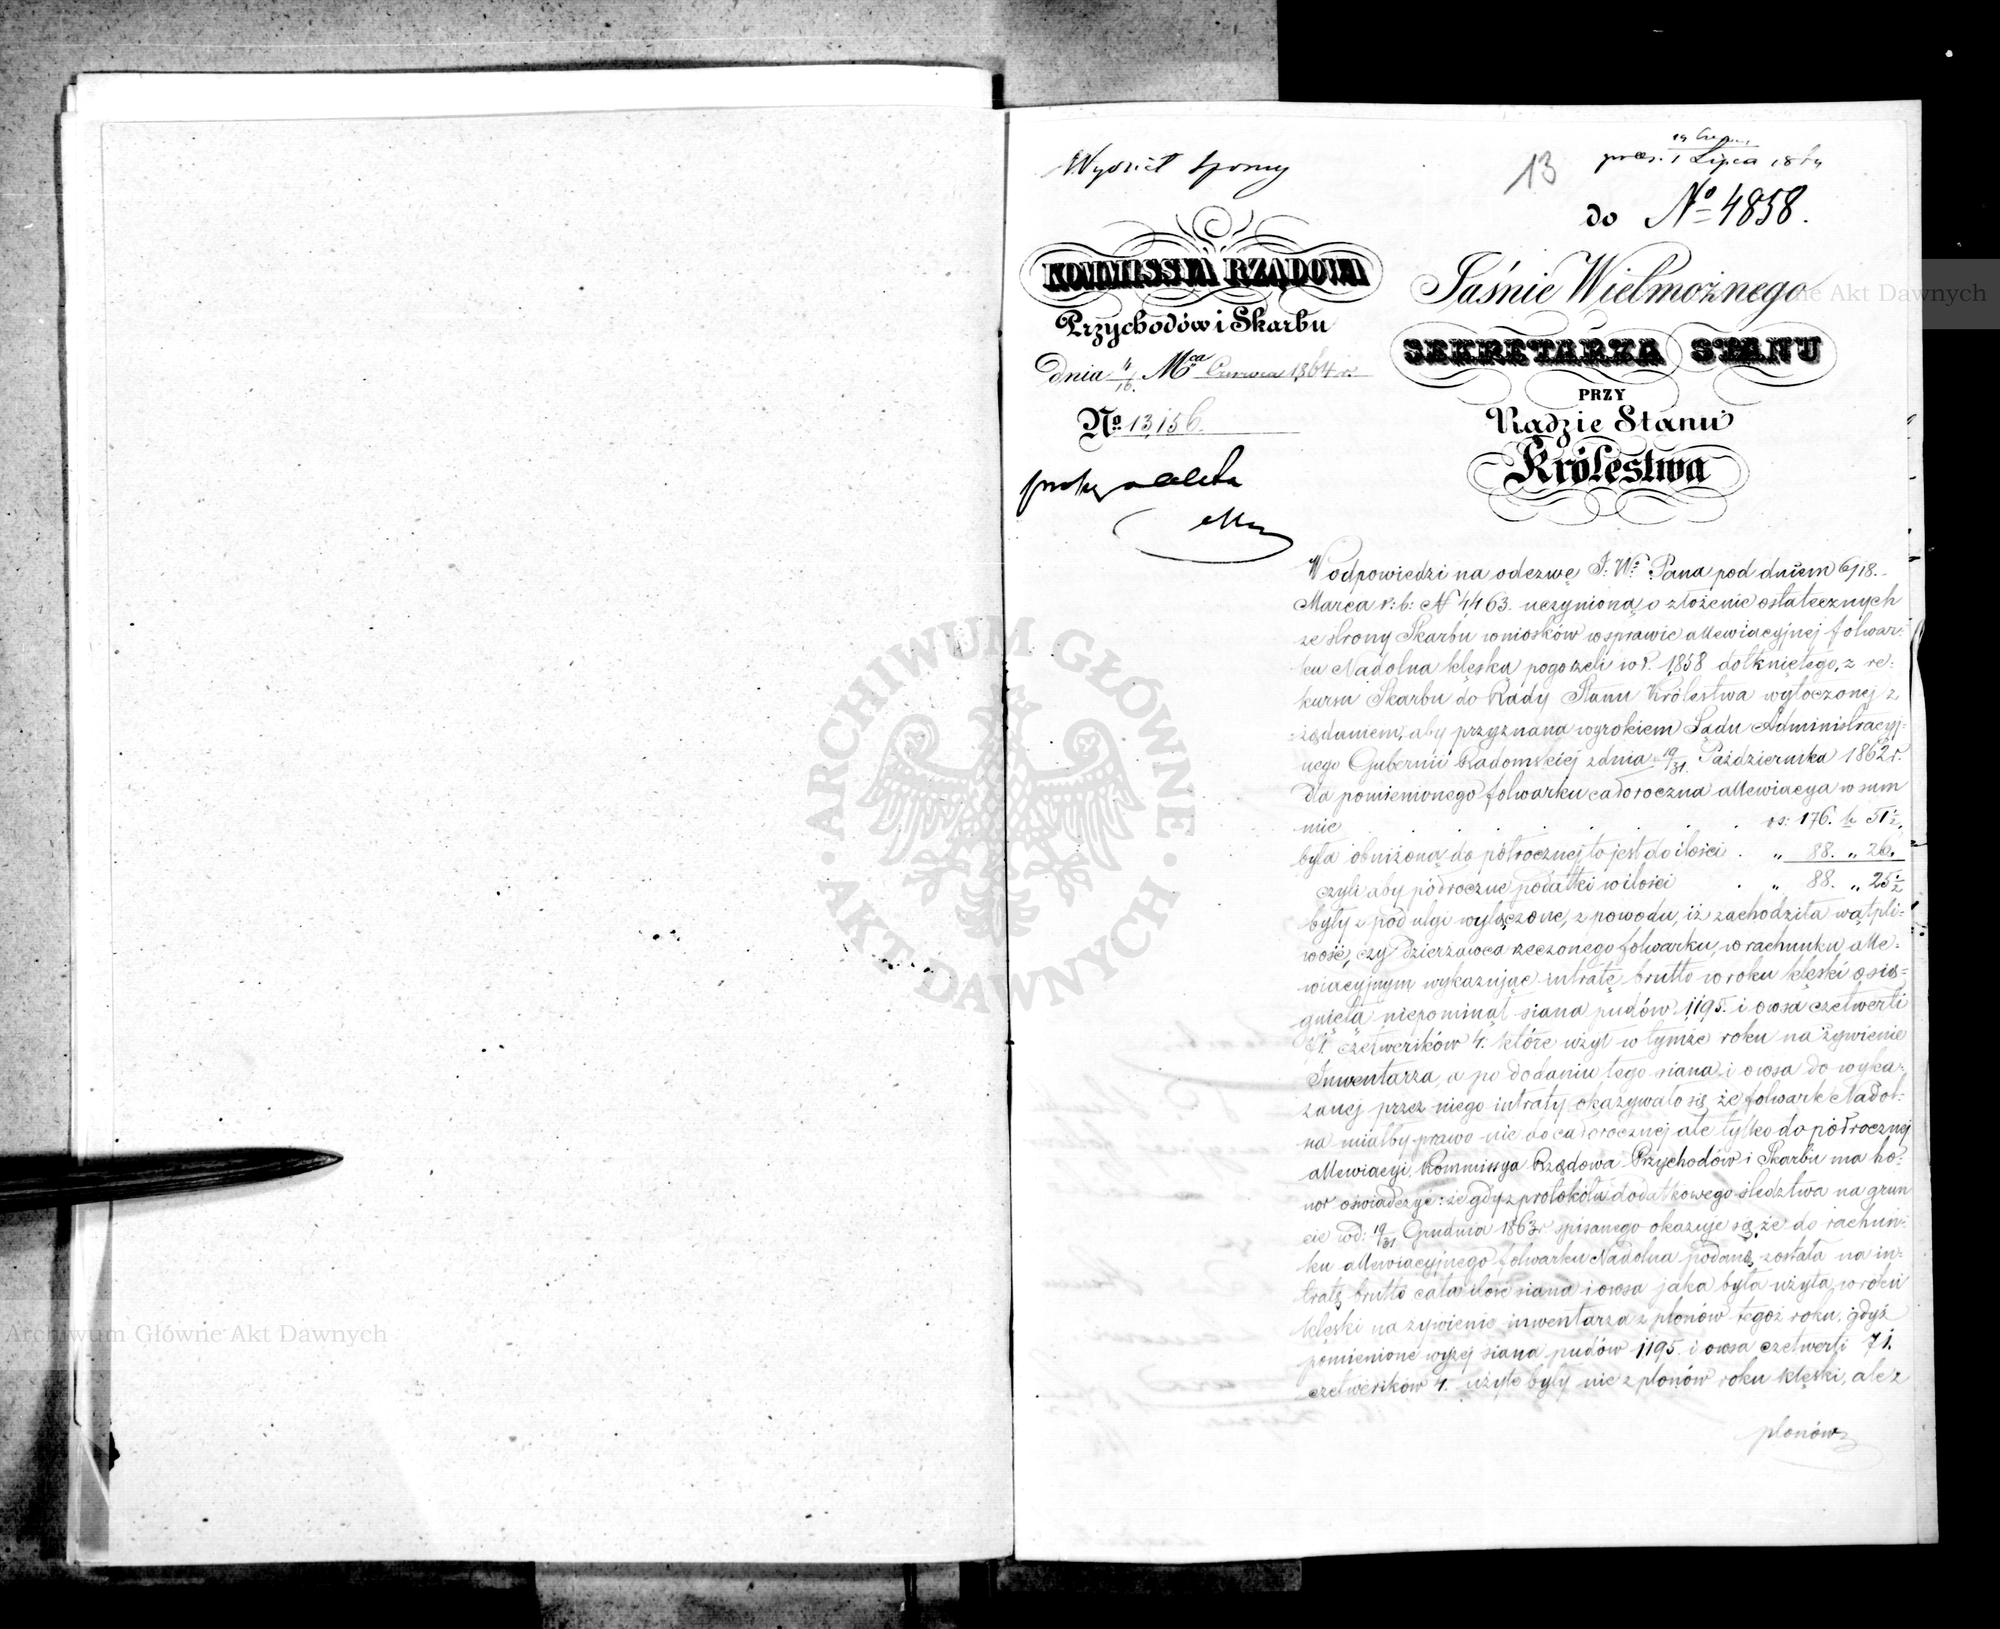 Wydział Sporny
13
prez. 1 Lipca 1864
do № 4858.
KOMMISSYA RZĄDOWA
Przychodów i Skarbu
dnia 4/16. Mca Czerwca 1864 r.
No. 13,156.
Jaśnie Wielmożnego
SEKRETARZA STANU
PRZY
Radzie Stanu
Królestwa
W odpowiedzi na odezwę J. W. Pana pod dniem 6/18.
Marca r: b: № 4463. uczynioną o złożenie ostatecznych
ze strony Skarbu wniosków w sprawie allewiacyjnej folwar:
ku Nadolna klęską pogorzeli w r. 1858 dotkniętego, z re:
kursu Skarbu do Rady Stanu Królestwa wytoczonej z
żądaniem, aby przyznana wyrokiem Sądu Administracyj:
nego Gubernii Radomskiej z dnia 19/31. Października 1862 r.
dla pomienionego folwarku całoroczna allewiacya w sum
mie . . . . . . rs: 176. k 51½,
była obniżoną do półrocznej to jest do ilości . „ 88. „ 26.
czyli aby półroczne podatki w ilości . „ 88. „ 25½
były z pod ulgi wyłączone, z powodu, iż zachodziła wątpli:
wość, czy Dzierżawca rzeczonego folwarku, w rachunku alle:
wiacyjnym wykazując intratę brutto w roku klęski osią:
gniętą niepominął siana pudów 1195. i owsa czetwerti
71. czetwerików 4. które użył w tymże roku na żywienie
Inwentarza, a po dodaniu tego siana i owsa do wyka:
zanej przez niego intraty okazywało się że folwark Nadol:
na miałby prawo nie do całorocznej ale tylko do półrocznej
allewiacyi. Kommissya Rządowa Przychodów i Skarbu ma ho:
nor oświadczyć: że gdy z protokółu dodatkowego śledztwa na grun
cie pod: 19/31 Grudnia 1863 r spisanego okazuje się że do rachun:
ku allewiacyjnego folwarku Nadolna podaną została na in:
tratę brutto cała ilość siana i owsa jaka była użyta w roku
klęski na żywienie inwentarza z plonów tegoż roku, gdyż
pomienione wyżej siana pudów 1195. i owsa czetwerti 71.
czetwerików 4. użyte były nie z plonów roku klęski, ale z
plonów
ARCHIWUM GŁÓWNE
AKT DAWNYCH
Archiwum Główne Akt Dawnych